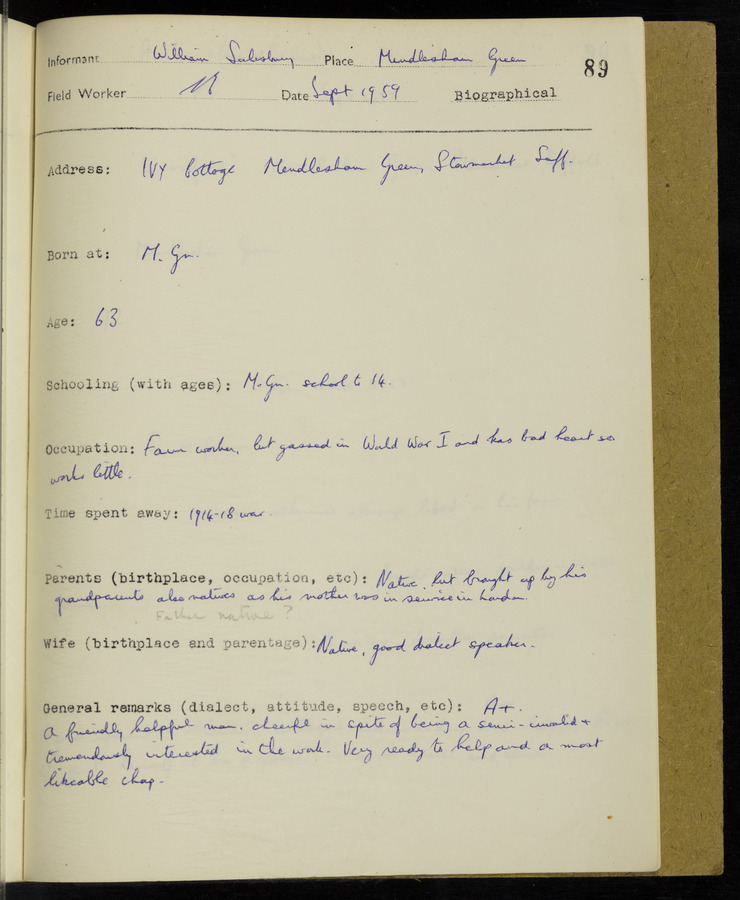 Informant William Salisbury Place Mendlesham Green 89
Field Worker Date Sept 1959 Biographical
Address: Ivy Cottage Mendlesham Green, Stowmarket Suff.
Born at: M. Gn.
Age: 63
Schooling (with ages): M. Gn. school to 14.
Occupation: Farm worker, but gassed in World War I and has bad heart so
works little.
Time spent away: 1914-18 war.
Parents (birthplace, occupation, etc): Native, but brought up by his
grandparents also natives as his mother was in service in London.
Father native?
Wife (birthplace and parentage): Native, good dialect speaker.
General remarks (dialect, attitude, speech, etc): A+.
A friendly helpful man, cheerful in spite of being a semi-invalid +
tremendously interested in the work. Very ready to help and a most
likeable chap.